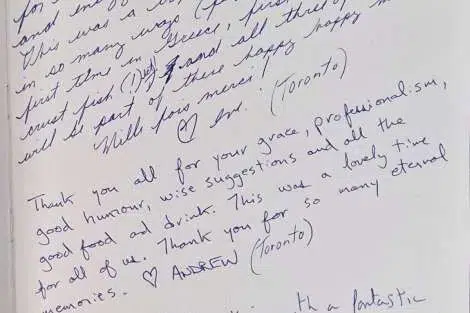 for
and en
This was a
in so many ways
first time in Greece, first
crust fish (!) and all three of
will be part of these happy happy m
Mille fois merci!
♡ Eve. (Toronto)
Thank you all for your grace, professionalism,
good humour, wise suggestions and all the
good food and drink. This was a lovely time
for all of us. Thank you for so many eternal
memories. ♡ ANDREW (Toronto)
th a fantastic